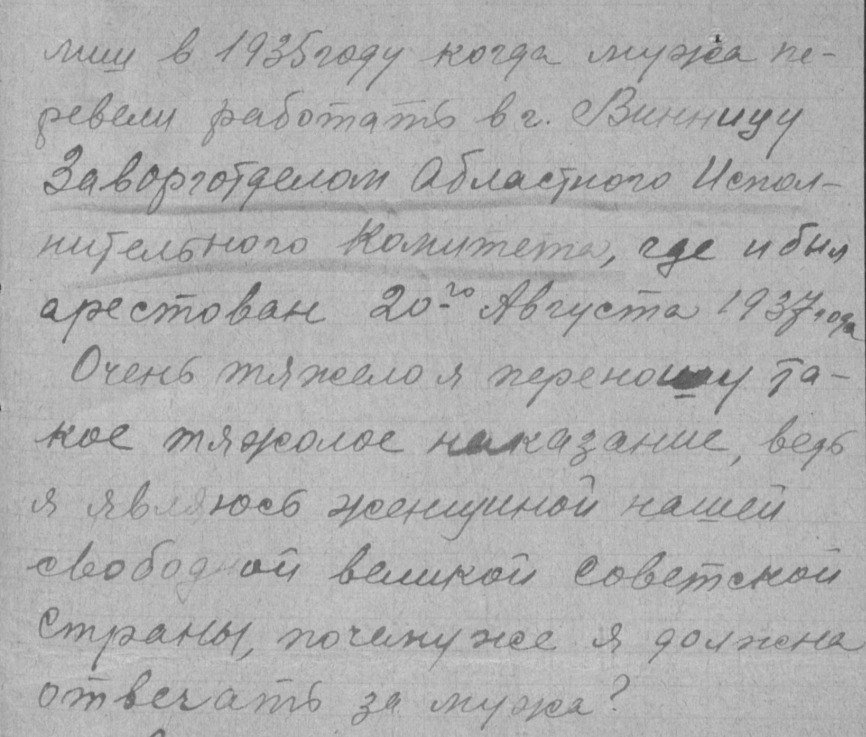 лиш в 1935году когда мужа пе-
ревели работать в г. Винницу
Заворготделом Областного Испол-
нительного Комитета, где и был
арестован 20-го Августа 1937 года
Очень тяжело я переношу та-
кое тяжолое наказание, ведь
я являюсь женщиной нашей
свободной великой советской
страны, почему же я должна
отвечать за мужа?